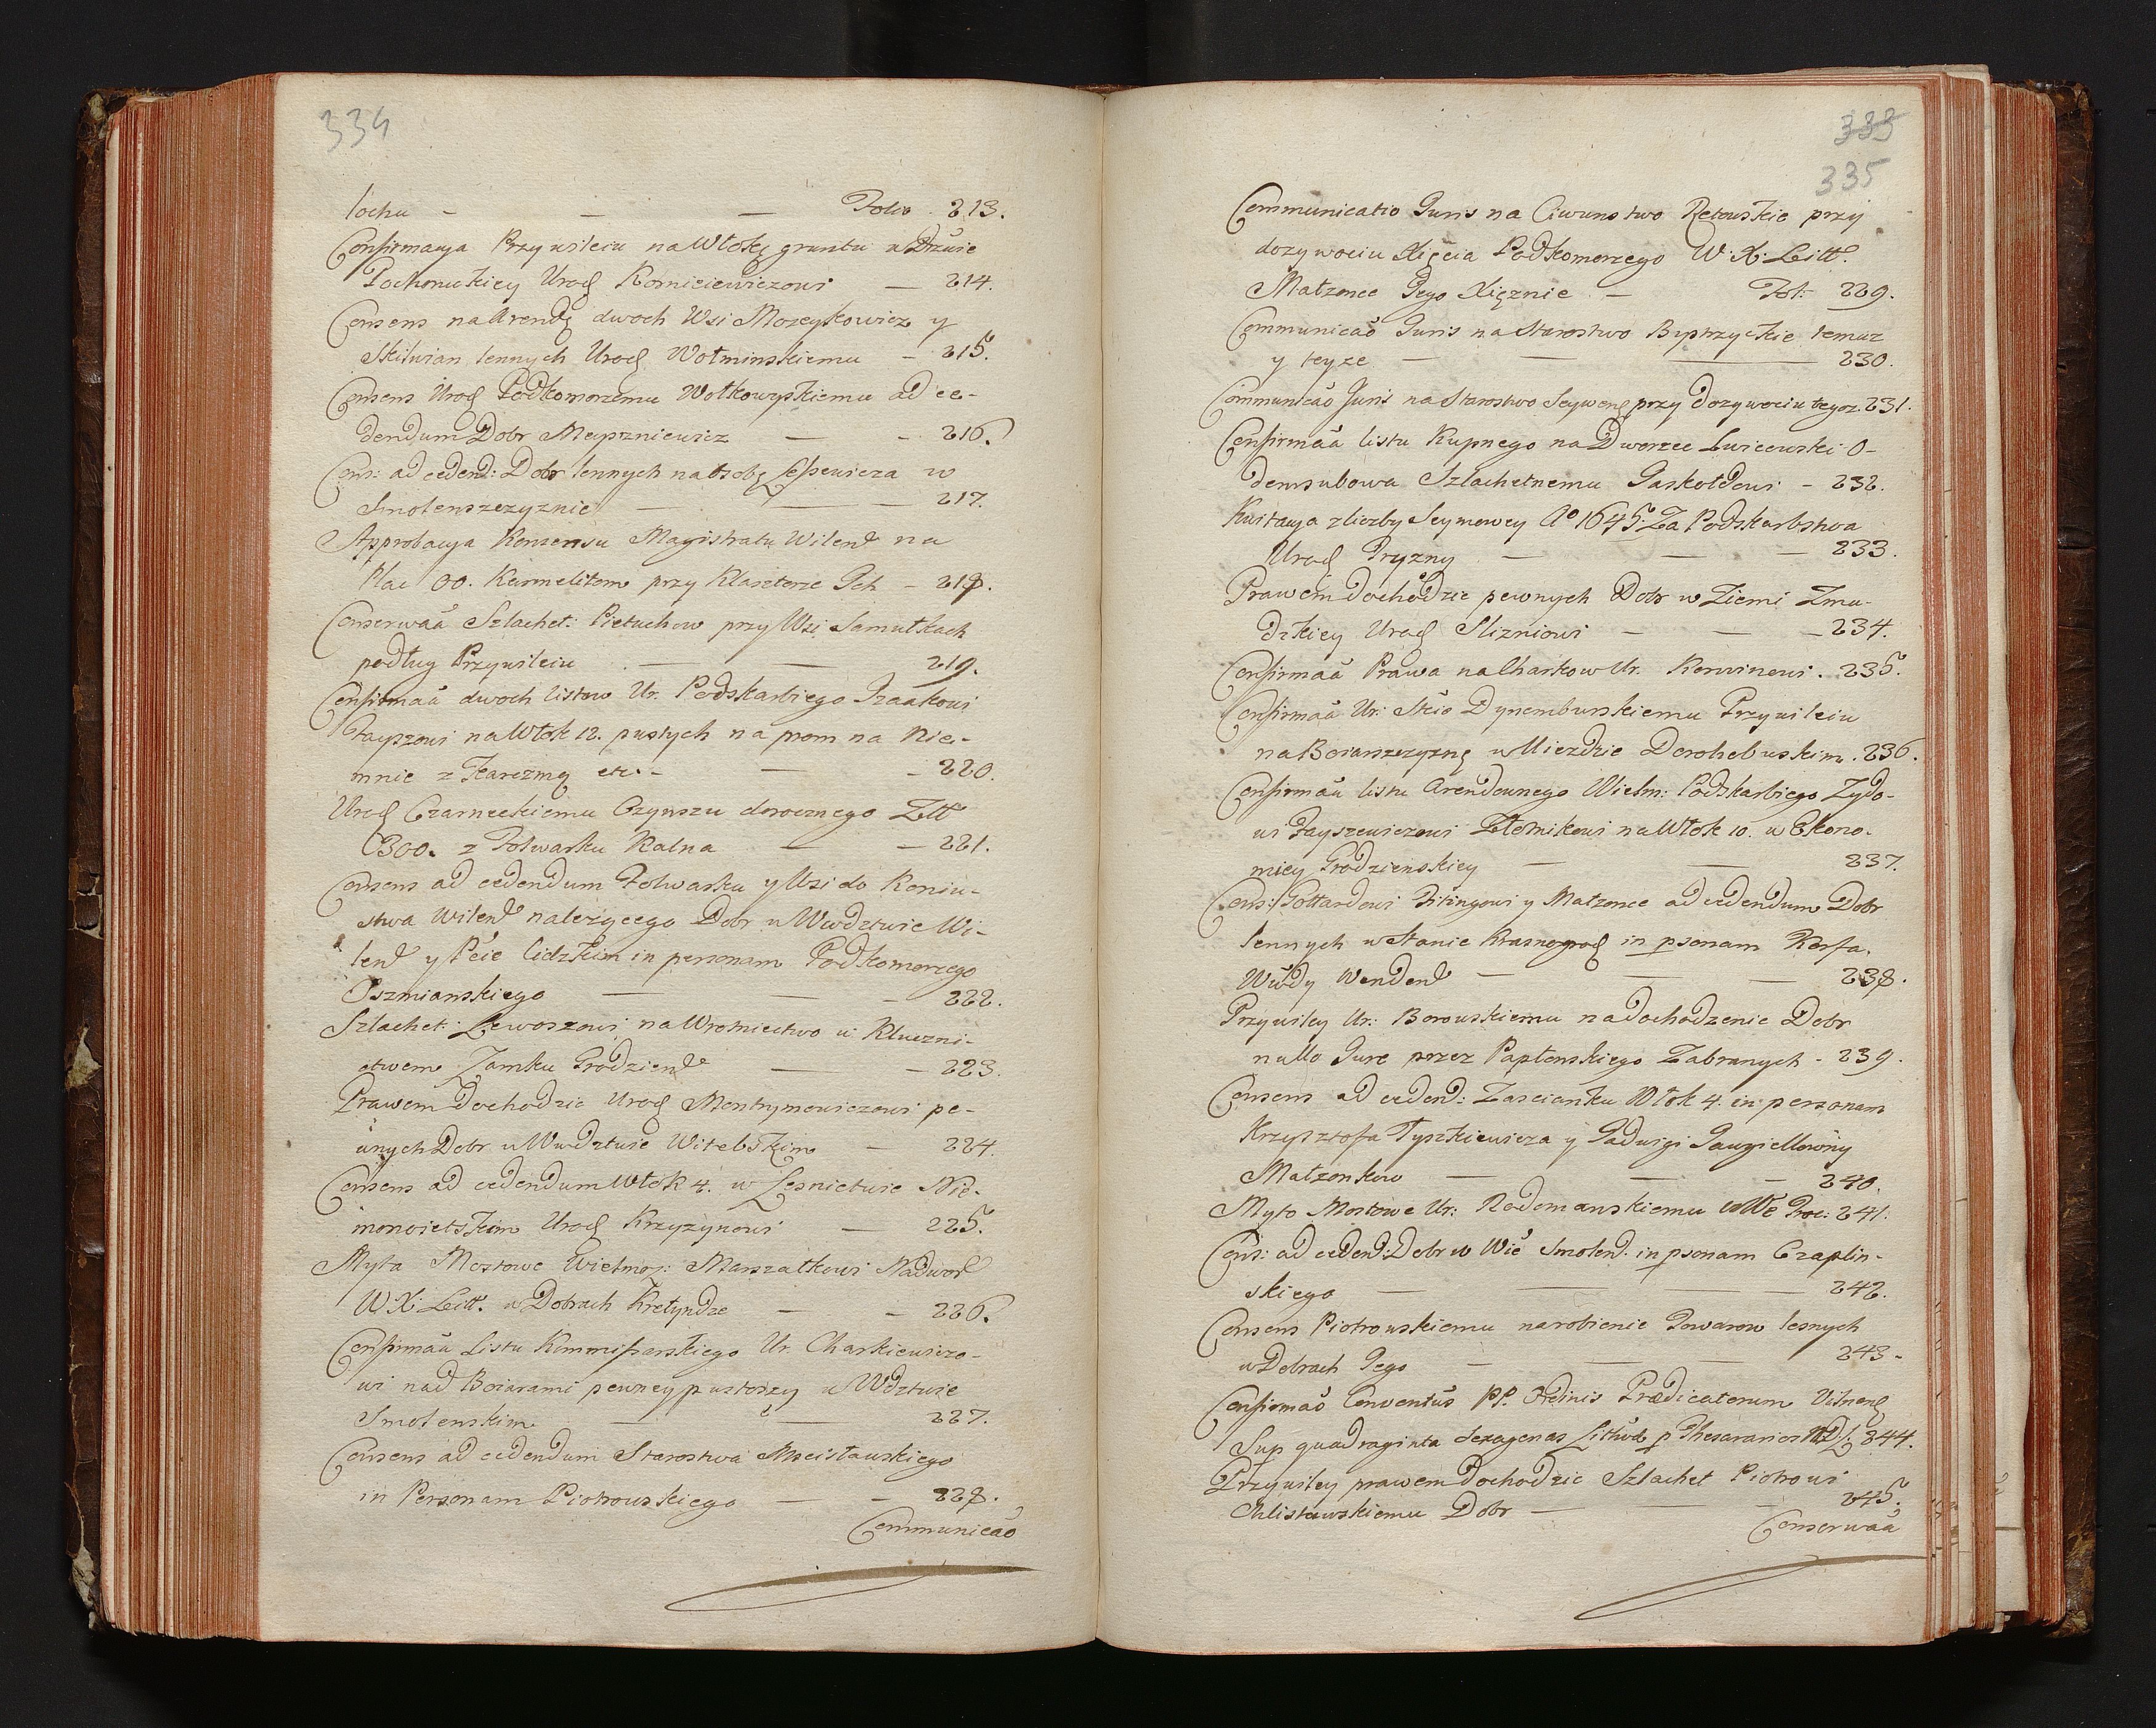 334
lochu - - - Folio 213.
Confirmacya Przywileiu na Włokę gruntu w Dzuie
Pochonickiey Urod Korniciewiczowi - 214.
Consens na Arendę dwoch Wsi Mozeykowicz y
Skilwian lennych Urod Wołminskiemu - 215.
Consens Urod Podkomorzemu Wołkowyskiemu ad ce-
dendum Dobr - - 216.
Cons: ad cedend: Dobr lennych na Osobę w
Smolenszczyznie - - 217.
Approbacya Konsensu Magistratu Wilend na
Plac OO. Karmelitom przy Klasztorze Ich - 218.
Conserwaã Szlachet: Pietuchow przy Wsi Samułkach
podług Przywileiu - - 219.
Confirmaã dwoch listow Ur. Podskarbiego Izaakowi
Fayszowi na Włok 12. pustych na prom na Nie-
mnie z Karczmą etc. - - 220.
Urod Czarneckiemu Czynszu dorocznego Złł
C300. z Folwarku Kalna - - 221.
Consens ad cedendum Folwarku y Wsi do Koniu-
stwa Wilend nalezącego Dobr w Wwdztwie Wi-
lend y Pcie Lidzkim in personam Podkomorzego
Oszmianskiego - - 222.
Szlachet: Lewoszowi na Wrotnictwo w Kluczni-
ctwem Zamku Grodziend - - 223.
Prawem dochodzic Urod Montrymowiczowi pe-
wnych Dobr w Wwdztwie Witebskim - 224.
Consens ad cedendum Włok 4. w Lesnictwie Nie-
monoietskim Urod Krzyzynowi - 225.
Myta Mostowe Wielmoz: Marszałkowi Nadword
W X Litt. w Dobrach Kretyndze - - 226.
Confirmaã Listu Kommissarskiego Ur. Charkiewiczo-
wi nad Boiarami pewney pustoszy w Wdztwie
Smolenskim - - 227.
Consens ad cedendum Starostwa Mscisławskiego
in Personam Piotrowskiego - - 228.
Communicaõ
333
335
Communicatio Juris na Ciwunstwo Retowskie przy
dozywociu Xięcia Podkomorzego W: X: Litt.
Małzonce Jego Xięznie - Fol: 229.
Communicaõ Juris na Starostwo Bystrzyckie temuz
y teyze - - 230.
Communicaõ Juris na Starostwo Seywend przy dozywociu tegoz 231.
Confirmaã listu Kupnego na Dworzec Lwicewski O-
demsubowa Szlachetnemu Gaskołdowi - 232.
Kwitacya z liczby Seymowey Aº 1645 Za Podskarbstwa
Urod Tryzny - - 233.
Prawem dochodzic pewnych Dobr w Ziemi Zmu-
dzkiey Urod Slizniowi - - 234.
Confirmaã Prawa na Charkow Ur. Korwinowi. 235.
Confirmaã Ur: Dynemburskiemu Przywileiu
na Boiarszczyznę w Uiezdzie Dorohobuskim. 236.
Confirmaã listu Arendownego Wielm: Podskarbiego Zydo-
wi Fayszewiczowi Złotnikowi na Włok 10. w Ekono-
miey Grodzienskiey - - 237.
Cons: Gottardowi Pitingowi y Małzonce ad cedendum Dobr
lennych w Stanie Krasnogrod in psonam Korfa.
Wwdy Wendend - - 238.
Przywiley Ur: Borowskiemu na dochodzenie Dobr
nullo Jure przez Zabranych - 239.
Consens ad cedend: Zascianku Włok 4. in personam
Krzysztofa Tyszkiewicza y Jadwigi Jaugiellowny
Małzonkow - - 240.
Myto Mostowe Ur: Radomanskiemu 241.
Cons: ad cedend: Dobr w Wie Smolend. in psonam Czaplin-
skiego - - 242.
Consens Piotrowskiemu na robienie Towarow lesnych
w Dobrach Jego - - 243.
Confirmaõ Conventûs PP. Ordinis Prædicatorum Vilnend
Sup quadraginta sexagenas Lithvd p Thesaurarios MDL: 244.
Przywiley prawem dochodzic Szlachet Piotrowi
Chlistowskiemu Dobr - - 245.
Conserwaã